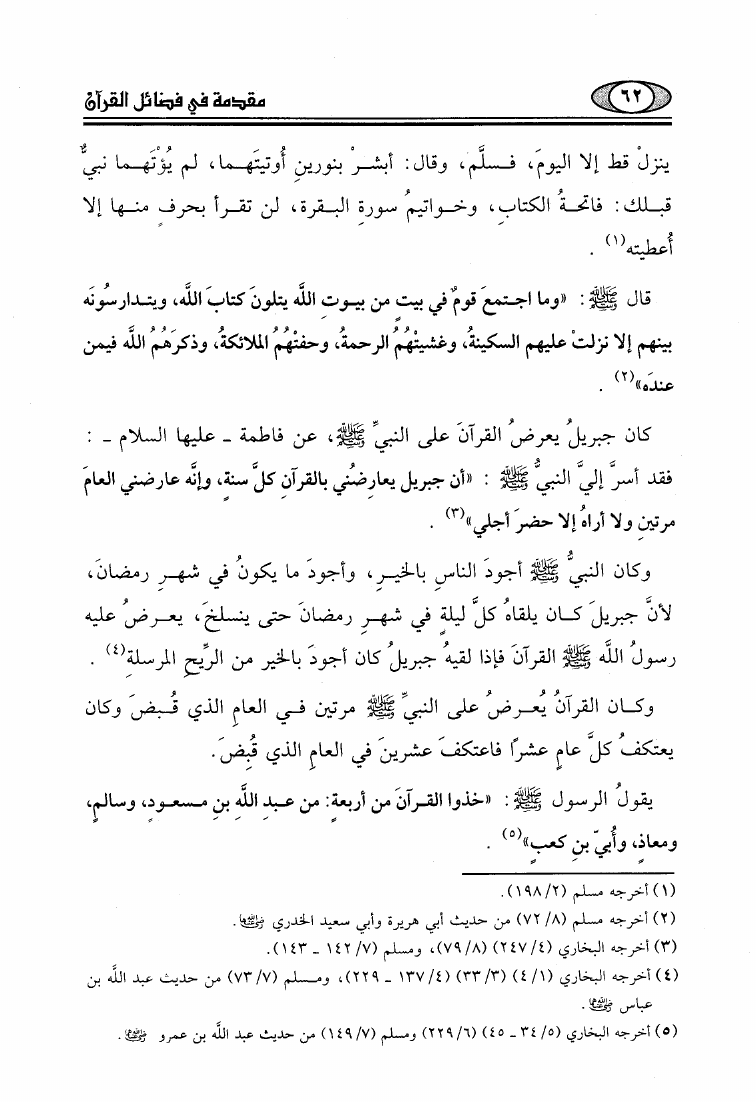 ٦٢
مقدمة في فضائل القرآن
ينزلْ قط إلا اليومَ، فـسلَّم، وقال: أبشـرْ بنورينِ أُوتيتَهـما، لم يُؤْتَهـما نبيٌّ
قبـلك: فاتحـةُ الكتابِ، وخـواتيمُ سورةِ البـقرة، لن تقـرأ بحرفٍ منـها إلا
أُعطيته(١) .
قال ﷺ: «وما اجـتمعَ قومٌ في بيتٍ من بيـوتِ اللَّه يتلونَ كتابَ اللَّه، ويتـدارسُونَه
بينهم إلا نزلتْ عليهم السكينةُ، وغشيتْهُمُ الرحمةُ، وحفتْهُمُ الملائكةُ، وذكرَهُمُ اللَّه فيمن
عندَه»(٢) .
كان جبريلُ يعرضُ القرآنَ على النبيِّ ﷺ، عن فاطمة ـ عليها السلام ـ :
فقد أسرَّ إليَّ النبيُّ ﷺ : «أن جبريل يعارضُني بالقرآنِ كلَّ سنةٍ، وإنَّه عارضني العامَ
مرتينِ ولا أراهُ إلا حضرَ أجلي»(٣) .
وكان النبيُّ ﷺ أجودَ الناسِ بالخيـرِ، وأجودَ ما يكونُ في شهـرِ رمضانَ،
لأنَّ جبريلَ كـان يلقاهُ كلَّ ليلةٍ في شهـرِ رمضانَ حتى ينسلخَ، يعـرضُ عليه
رسولُ اللَّه ﷺ القرآنَ فإذا لقيهُ جبريلُ كان أجودَ بالخير من الرِّيحِ المرسلةِ(٤) .
وكـان القرآنُ يُعـرضُ على النبيِّ ﷺ مرتين فـي العامِ الذي قُـبضَ وكان
يعتكفُ كلَّ عامٍ عشرًا فاعتكفَ عشرينَ في العامِ الذي قُبِضَ.
يقولُ الرسول ﷺ: «خذوا القـرآنَ من أربعةٍ: من عبـدِ اللَّهِ بنِ مـسعـودٍ، وسالمٍ،
ومعاذٍ، وأُبيّ بنِ كعبٍ»(٥) .
(١) أخرجه مسلم (٢/ ١٩٨).
(٢) أخرجه مسلم (٨/ ٧٢) من حديث أبي هريرة وأبي سعيد الخدري رضي الله عنهما.
(٣) أخرجه البخاري (٤/ ٢٤٧) (٨/ ٧٩)، ومسلم (٧/ ١٤٢ ـ ١٤٣).
(٤) أخرجه البخاري (١/ ٤) (٣/ ٣٣) (٤/ ١٣٧ ـ ٢٢٩)، ومـسلم (٧/ ٧٣) من حديث عبد اللَّه بن
عباس رضي الله عنهما .
(٥) أخرجه البخاري (٥/ ٣٤ ـ ٤٥) (٦/ ٢٢٩) ومسلم (٧/ ١٤٩) من حديث عبد اللَّه بن عمرو رضي الله عنهما .